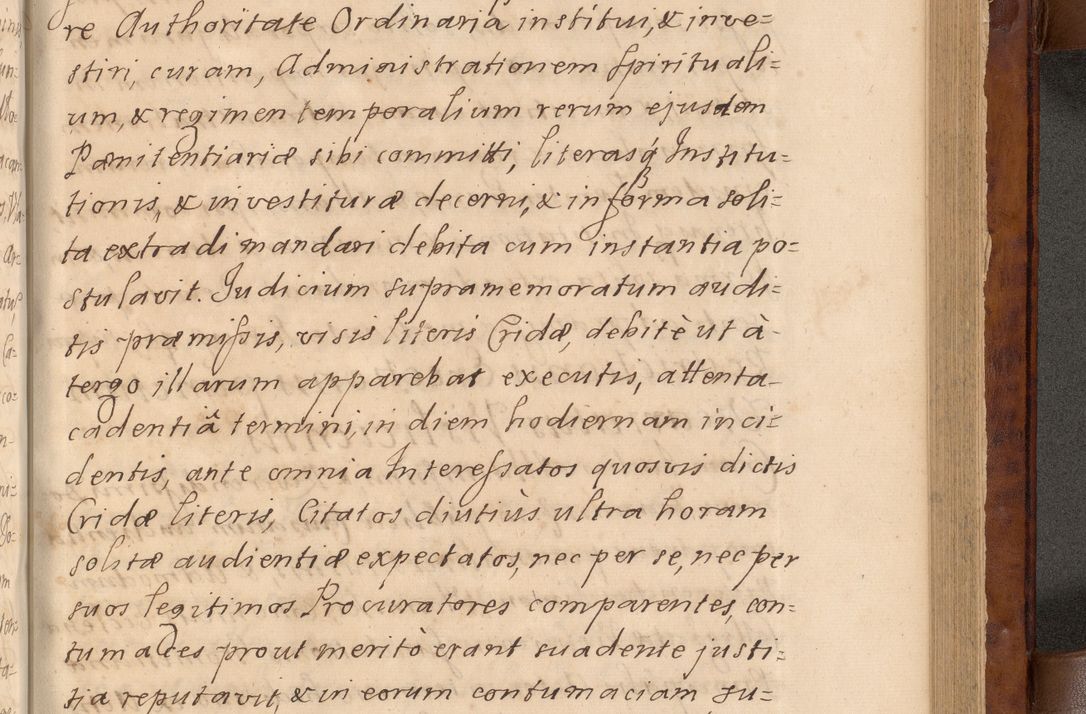 re Authoritate Ordinaria institui, & inve=
stiri, curam, Administrationem spirituali=
um, & regimen temporalium rerum ejusdem
Pænitentiariæ sibi committi, literasq́ Institu=
tionis, & investituræ decerni, & in forma soli=
ta extradi mandari debita cum instantia po=
stulavit. Judicium supramemoratum audi=
tis præmißis, visis literis Cridæ, debitè ut à
tergo illarum apparebat executis, attenta
cadentiâ termini, in diem hodiernam inci=
dentis, ante omnia Interessatos quosvis dictis
Cridæ literis, Citatos diutiùs ultra horam
solitæ audientiæ expectatos, nec per se, nec per
suos legitimos Procuratores comparentes, con=
tumaces prout meritò erant suadente justi=
tia reputavit, & in eorum contumaciam su=